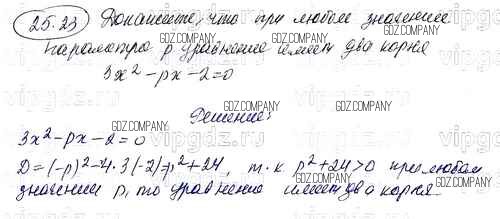 25.23 Докажите, что при любом значении
параметра p уравнение имеет два корня
3x² - px - 2 = 0
Решение:
3x² - px - 2 = 0
D = (-p)² - 4·3(-2) = p² + 24, т.к p² + 24 > 0 при любом
значении p, то уравнение имеет два корня.
GDZ.COMPANY
vipgdz.ru